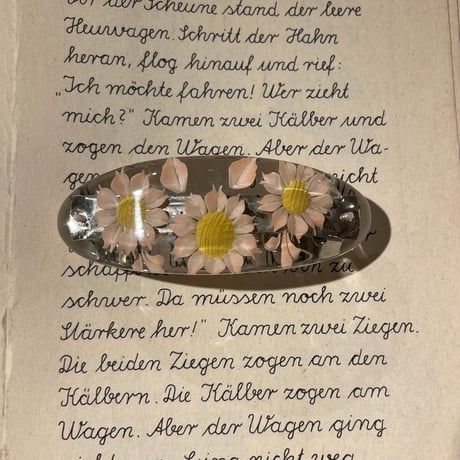 Vor der Scheune stand der leere
Heuwagen. Schritt der Hahn
heran, flog hinauf und rief:
„Ich möchte fahren! Wer zieht
mich?" Kamen zwei Kälber und
zogen den Wagen. Aber der Wa-
gen nicht
schaff
schwer. Da müssen noch zwei
Stärkere her!" Kamen zwei Ziegen.
Die beiden Ziegen zogen an den
Kälbern. Die Kälber zogen am
Wagen. Aber der Wagen ging
nicht weg